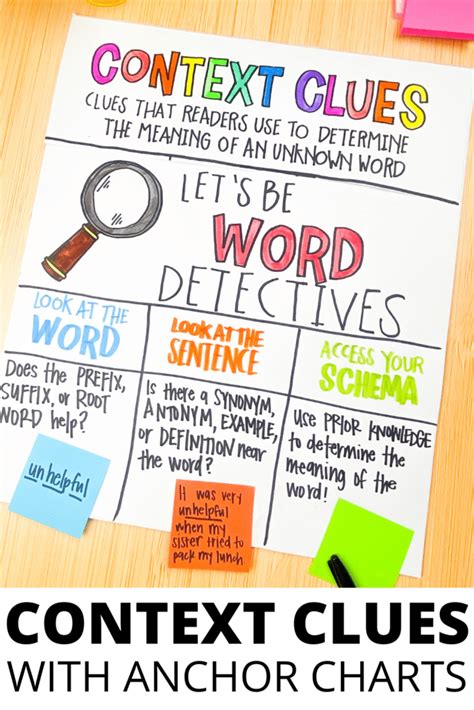 CONTEXT CLUES
CLUES THAT READERS USE TO DETERMINE
THE MEANING OF AN UNKNOWN WORD
LET'S BE
WORD
DETECTIVES
LOOK AT THE
WORD
Does the PREFIX,
SUFFIX, or ROOT
WORD help?
unhelpful
LOOK AT THE
SENTENCE
Is there a SYNONYM,
ANTONYM, EXAMPLE,
or DEFINITION near
the word?
It was very
unhelpful
when my
sister tried to
pack my lunch
ACCESS YOUR
SCHEMA
USE PRIOR KNOWLEDGE
to determine the
meaning of the
word!
CONTEXT CLUES
WITH ANCHOR CHARTS